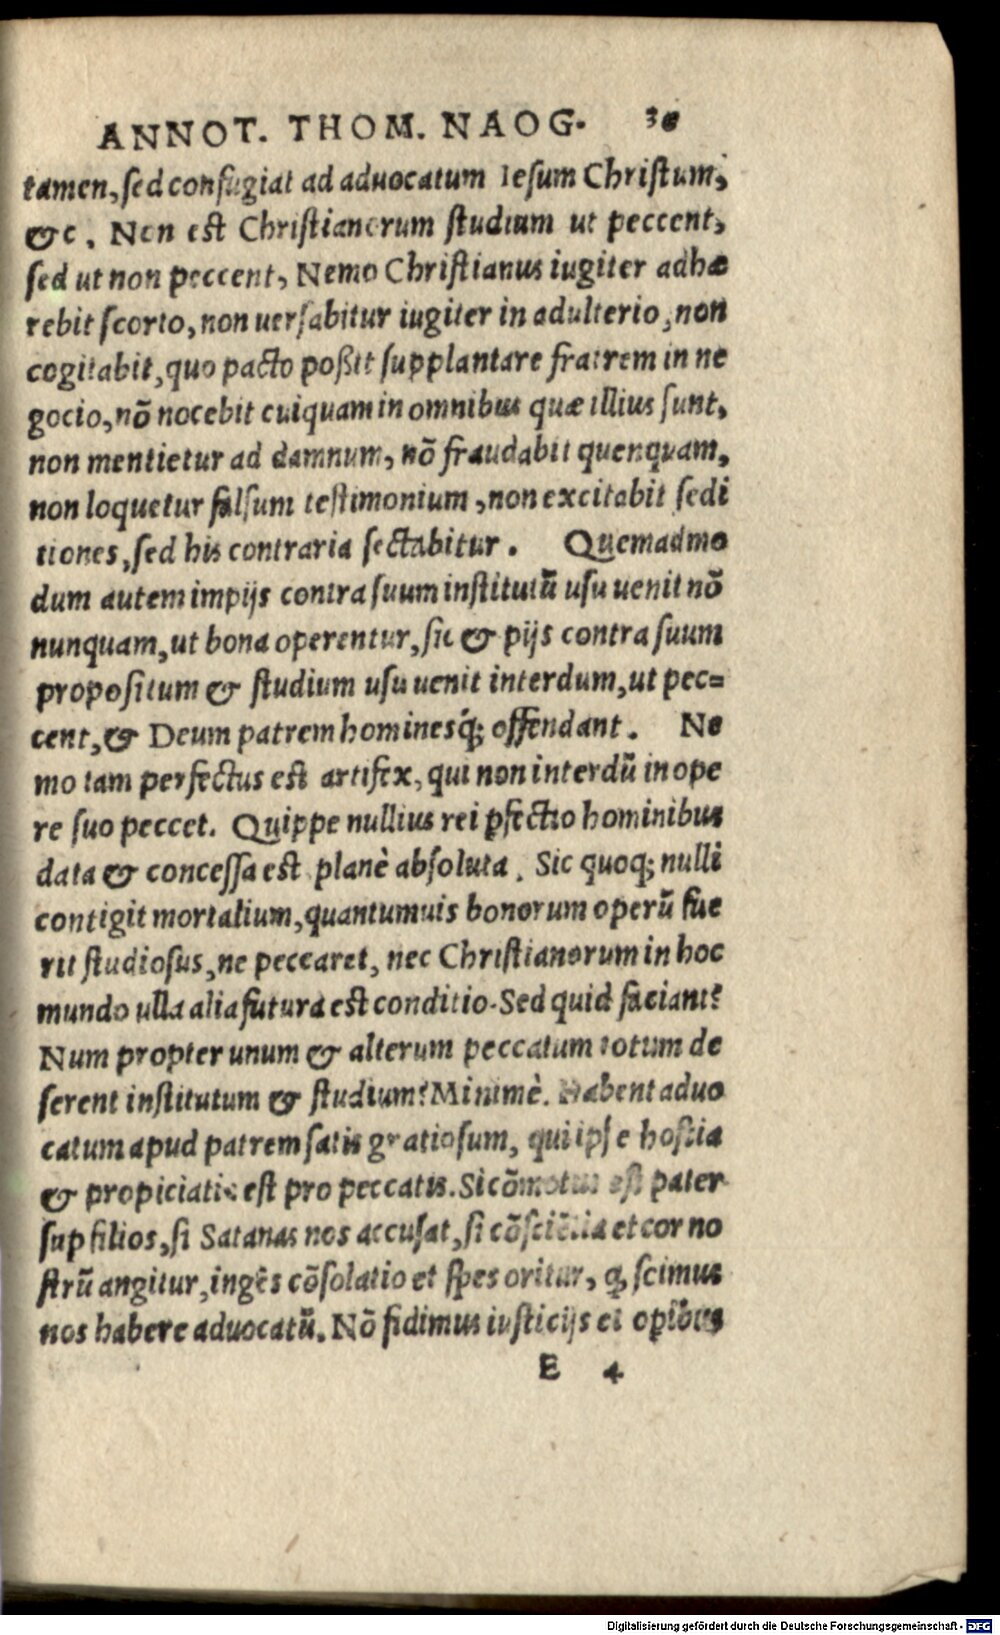 ANNOT. THOM. NAOG.
tamen, sed confugiat ad aduocatum Iesum Christum,
&c. Non est Christianorum studium ut peccent,
sed ut non peccent, Nemo Christianus iugiter adhæ
rebit scorto, non uersabitur iugiter in adulterio, non
cogitabit, quo pacto poßit supplantare fratrem in ne
gocio, nō nocebit cuiquam in omnibus quæ illius sunt,
non mentietur ad damnum, nō fraudabit quenquam,
non loquetur falsum testimonium, non excitabit sedi
tiones, sed his contraria sectabitur. Quemadmo
dum autem impijs contra suum institutū usu uenit nō
nunquam, ut bona operentur, sic & pijs contra suum
propositum & studium usu uenit interdum, ut pec=
cent, & Deum patrem hominesq́; offendant. Ne
mo tam perfectus est artifex, qui non interdū in ope
re suo peccet. Quippe nullius rei ꝑfectio hominibus
data & concessa est planè absoluta. Sic quoq; nulli
contigit mortalium, quantumuis bonorum operū fue
rit studiosus, ne peccaret, nec Christianorum in hoc
mundo ulla alia futura est conditio. Sed quid faciant?
Num propter unum & alterum peccatum totum de
serent institutum & studium? Minimè. Habent aduo
catum apud patrem satis gratiosum, qui ipse hostia
& propiciatis est pro peccatis. Si cōmotus est pater
sup filios, si Satanas nos accusat, si cōsciētia et cor no
strū angitur, ingēs cōsolatio et spes oritur, ꝙ scimus
nos habere aduocatū. Nō fidimus iusticijs et
E 4
Digitalisierung gefördert durch die Deutsche Forschungsgemeinschaft - DFG